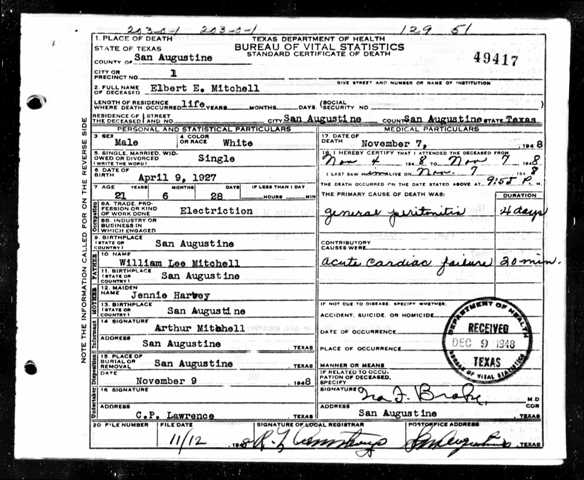 203-0-1 203-0-1 129 51
TEXAS DEPARTMENT OF HEALTH
BUREAU OF VITAL STATISTICS
STANDARD CERTIFICATE OF DEATH
49417
1 PLACE OF DEATH
STATE OF TEXAS
COUNTY OF San Augustine
CITY OR PRECINCT NO. 1
GIVE STREET AND NUMBER OR NAME OF INSTITUTION
2. FULL NAME OF DECEASED Elbert E. Mitchell
LENGTH OF RESIDENCE WHERE DEATH OCCURRED life YEARS MONTHS DAYS (SOCIAL SECURITY NO.
RESIDENCE OF THE DECEASED STREET AND NO. CITY San Augustine COUNTY San Augustine STATE Texas
PERSONAL AND STATISTICAL PARTICULARS
3 SEX Male
4 COLOR OR RACE White
5 SINGLE, MARRIED, WIDOWED OR DIVORCED (WRITE THE WORD) Single
6 DATE OF BIRTH April 9, 1927
7 AGE 21 YEARS 6 MONTHS 28 DAYS IF LESS THAN 1 DAY HOURS MIN
8A. TRADE, PROFESSION OR KIND OF WORK DONE Electriction
8B. INDUSTRY OR BUSINESS IN WHICH ENGAGED
9 BIRTHPLACE (STATE OR COUNTRY) San Augustine
10 NAME William Lee Mitchell
11 BIRTHPLACE (STATE OR COUNTRY) San Augustine
12 MAIDEN NAME Jennie Harvey
13 BIRTHPLACE (STATE OR COUNTRY) San Augustine
14 SIGNATURE Arthur Mitchell
ADDRESS San Augustine TEXAS
15 PLACE OF BURIAL OR REMOVAL San Augustine TEXAS
November 9 1948
16 SIGNATURE
ADDRESS C.P. Lawrence TEXAS
MEDICAL PARTICULARS
17 DATE OF DEATH November 7, 1948
18 I HEREBY CERTIFY THAT I ATTENDED THE DECEASED FROM
Nov 4 1948 TO Nov 7 1948
I LAST SAW ALIVE ON Nov. 7 1948
THE DEATH OCCURRED ON THE DATE STATED ABOVE AT 9:55 P. M
THE PRIMARY CAUSE OF DEATH WAS: DURATION
general peritonitis 4 days
CONTRIBUTORY CAUSES WERE:
acute cardiac failure 20 min.
IF NOT DUE TO DISEASE, SPECIFY WHETHER:
ACCIDENT, SUICIDE, OR HOMICIDE
DATE OF OCCURRENCE
PLACE OF OCCURRENCE
MANNER OR MEANS
IF RELATED TO OCCUPATION OF DECEASED, SPECIFY
SIGNATURE Ira F. Brake, M D
ADDRESS San Augustine TEXAS
DEPARTMENT OF HEALTH
RECEIVED
DEC 9 1948
TEXAS
BUREAU OF VITAL STATISTICS
20 FILE NUMBER FILE DATE SIGNATURE OF LOCAL REGISTRAR POSTOFFICE ADDRESS
11/12 1948 San Augustine TEXAS
NOTE THE INFORMATION CALLED FOR ON THE REVERSE SIDE
Occupation
FATHER
MOTHER
Informant